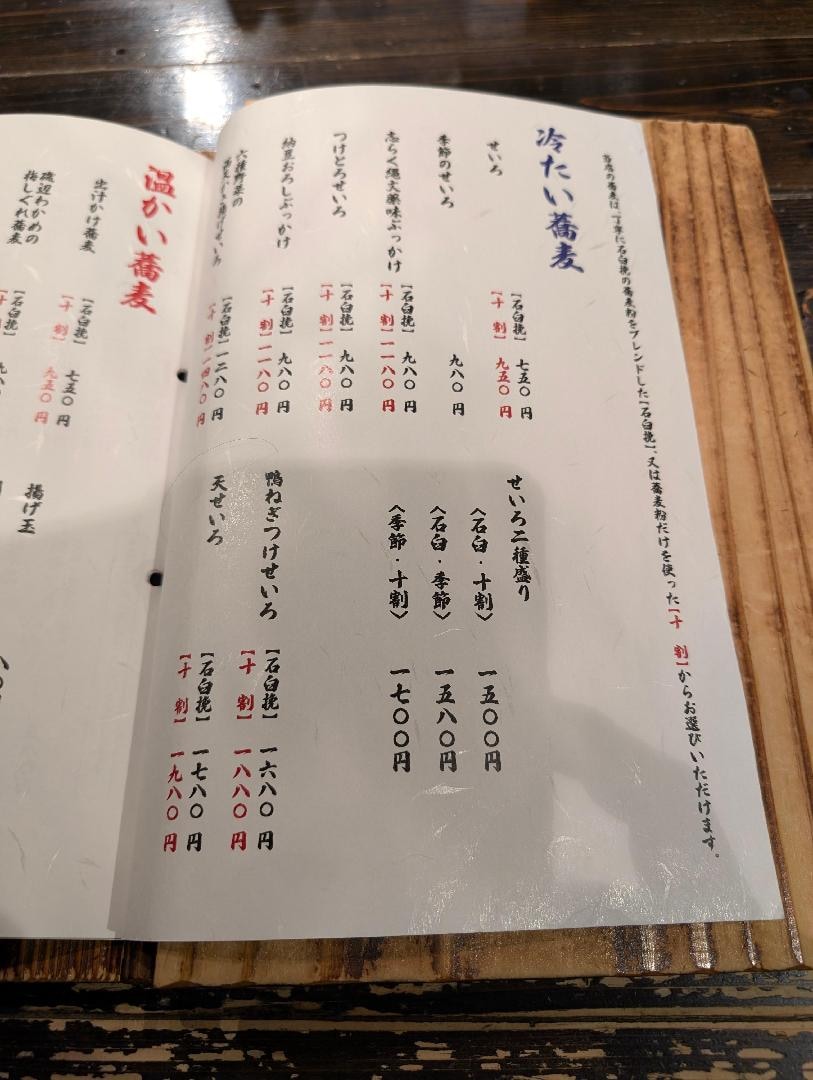 当店の蕎麦は、丁寧に石臼挽の蕎麦粉をブレンドした【石臼挽】、又は蕎麦粉だけを使った【十 割】からお選びいただけます。
冷たい蕎麦
せいろ
【石臼挽】 七五〇円
【十 割】 九五〇円
季節のせいろ
九八〇円
志らく縄文薬味ぶっかけ
【石臼挽】 九八〇円
【十 割】一一八〇円
つけとろせいろ
【石臼挽】 九八〇円
【十 割】一一八〇円
納豆おろしぶっかけ
【石臼挽】 九八〇円
【十 割】一一八〇円
六種野菜の
【石臼挽】一二八〇円
【十 割】一四八〇円
せいろ二種盛り
〈石臼・十割〉 一五〇〇円
〈石臼・季節〉 一五八〇円
〈季節・十割〉 一七〇〇円
鴨ねぎつけせいろ
【石臼挽】 一六八〇円
【十 割】 一八八〇円
天せいろ
【石臼挽】 一七八〇円
【十 割】 一九八〇円
温かい蕎麦
出汁かけ蕎麦
【石臼挽】 七五〇円
【十 割】 九五〇円
磯辺わかめの
梅しぐれ蕎麦
【石臼挽】
揚げ玉